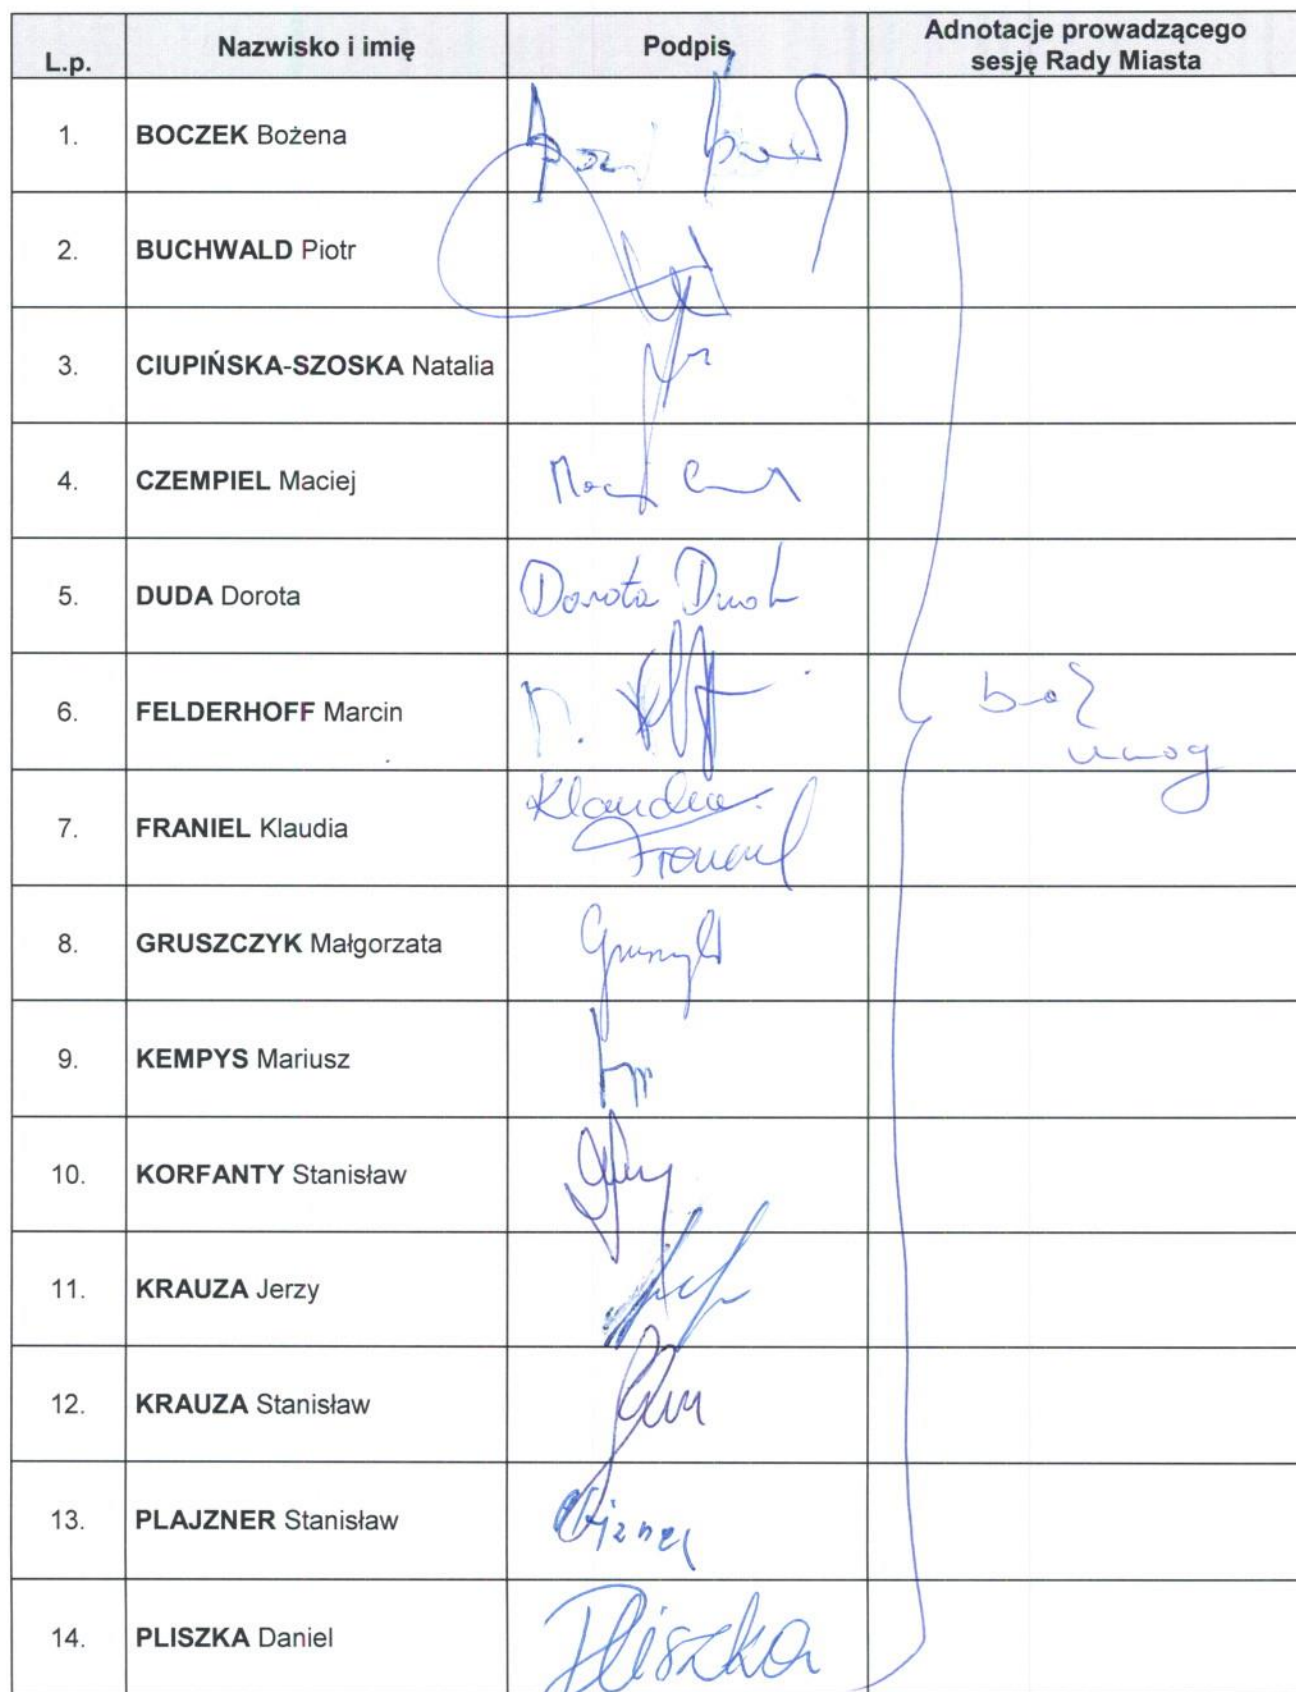 L.p. Nazwisko i imię Podpis Adnotacje prowadzącego
sesję Rady Miasta
1. BOCZEK Bożena
2. BUCHWALD Piotr
3. CIUPIŃSKA-SZOSKA Natalia
4. CZEMPIEL Maciej
5. DUDA Dorota Dorota Duda
6. FELDERHOFF Marcin
7. FRANIEL Klaudia Klaudia
Franiel
8. GRUSZCZYK Małgorzata
9. KEMPYS Mariusz
10. KORFANTY Stanisław
11. KRAUZA Jerzy
12. KRAUZA Stanisław
13. PLAJZNER Stanisław
14. PLISZKA Daniel Pliszka